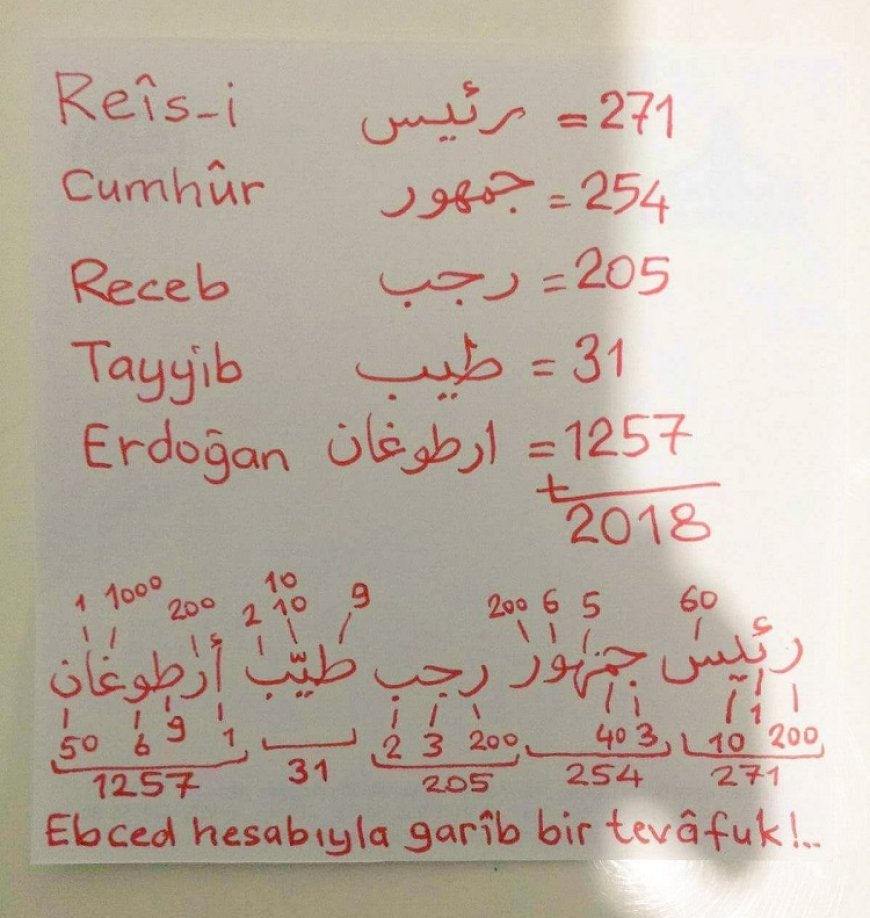 Reîs-i رئيس = 271
Cumhûr جمهور = 254
Receb رجب = 205
Tayyib طيب = 31
Erdoğan ارطوغان = 1257
+
2018
1 1000 200 2 10 10 9 200 6 5 60
رئيس جمهور رجب طيّب أرطوغان
50 6 9 1 2 3 200 40 3 10 1 200
1257 31 205 254 271
Ebced hesabıyla garîb bir tevâfuk!..